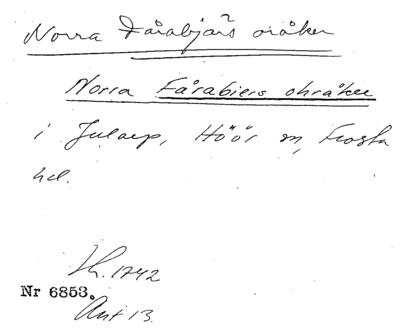 Norra Fårabjärs oråker
Norra Fårabiers ohråker
i Jularp, Höör sn, Frosta
hd.
Lh. 1742
Nr 6853.
Akt 13.